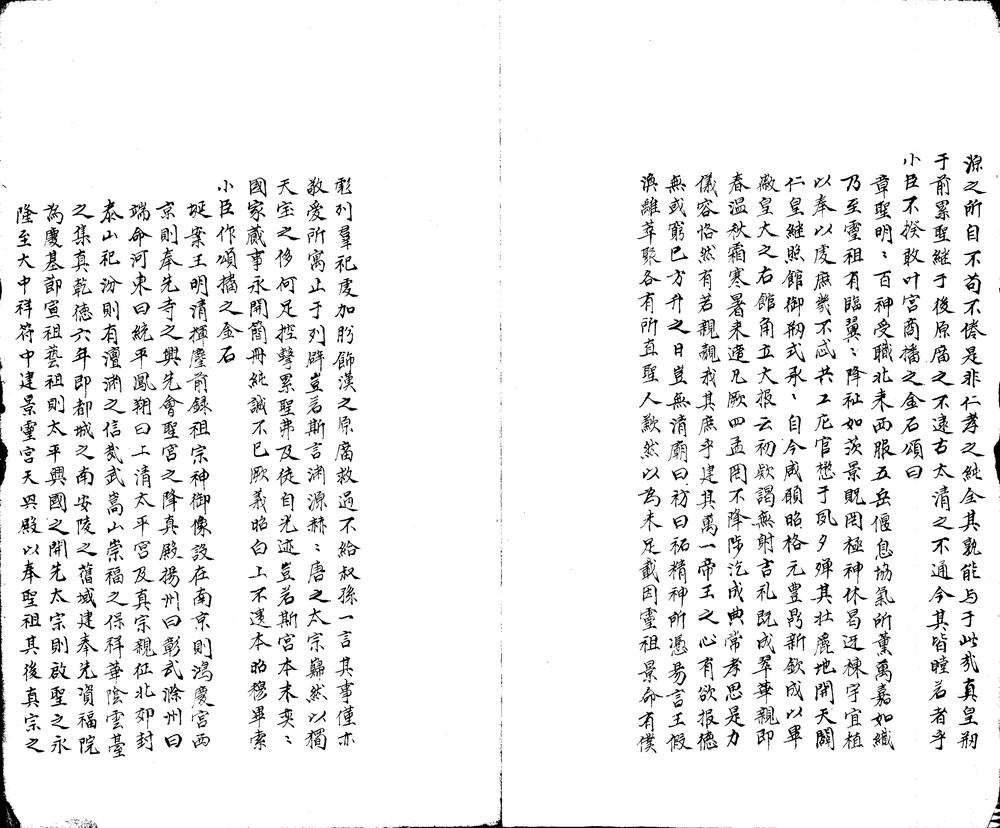 源之所自不苟不倦是非仁孝之純全其孰能与于此我真皇刱
于前累聖継于後原庿之不遠古太清之不通今其皆瞠若者乎
小臣不揆敢叶宫商播之金石頌曰
章聖明〻百神受職北耒西服五岳偃息協氣所薫萬嘉如織
乃至靈祖有臨翼〻降祉如茨景貺罔極神休曷迓棟宇宜植
以奉以虔庶㡬不忒共工庀官懋于夙夕殫其壮麗地開天闢
仁皇継照館御刱式承〻自今咸願昭格元豊鼎新欽成以畢
徽皇大之右館角立大報云初欵謁無射吉礼既成翠華親即
春温秋霜寒暑来遒凡厥四孟罔不降陟汔成典常孝思是力
儀容恪然有若親覿我其庶乎建其萬一帝王之心有欲报德
無或窮已方升之日豈無清廟曰礿曰祏精神所憑易言王假
渙離萃聚各有所直聖人歉然以為未足載因靈祖景命有僕
彫列羣祀虔加肹飾漢之原庿救過不給叔孫一言其事僅亦
敬愛所寓止于列辟豈若斯言渊源赫〻唐之太宗巋然以獨
天宝之侈何足控摶累聖弗及徒自光迹豈若斯宫本末奕〻
國家蕆事永開簡冊純誠不已厥義昭白上不遠本昭穆畢索
小臣作頌播之金石
埏案王明清揮麈前録祖宗神御像設在南京則鴻慶宫西
京則奉先寺之興先會聖宫之降真殿揚州曰彰武滁州曰
端命河東曰統平鳳翔曰上清太平宫及真宗親征北郊封
泰山祀汾則有澶渊之信武嵩山崇福之保祥華陰雲䑓
之集真乾德六年即都城之南安陵之舊域建奉先資福院
為慶基莭宣祖藝祖則太平興國之開先太宗則啟聖之永
隆至大中祥符中建景靈宫天興殿以奉聖祖其後真宗之